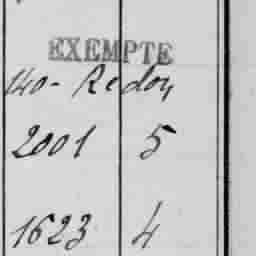 EXEMPTE
140 - Redon
2001 5
1623 4